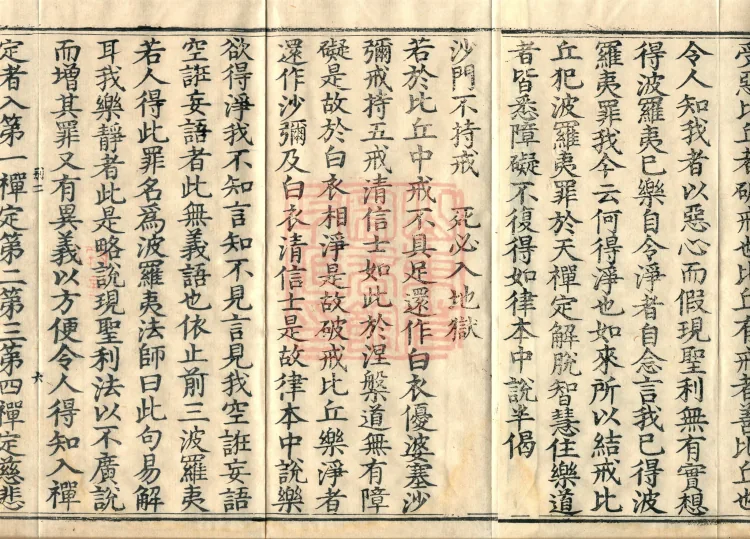 受惡比丘者破戒也比丘有戒者善比丘也
令人知我者以惡心而假現聖利無有實想
得波羅夷已樂自令淨者自念言我已得波
羅夷罪我今云何得淨也如來所以結戒比
丘犯波羅夷罪於天禪定解脫智慧住樂道
者皆悉障礙不復得如律本中說半偈
沙門不持戒　死必入地獄
若於比丘中戒不具足還作白衣優婆塞沙
彌戒持五戒清信士如此於涅槃道無有障
礙是故於白衣相淨是故破戒比丘樂淨者
還作沙彌及白衣清信士是故律本中說樂
欲得淨我不知言知不見言見我空誑妄語
空誑妄語者此無義語也依止前三波羅夷
若人得此罪名爲波羅夷法師曰此句易解
耳我樂靜者此是略說現聖利法以不廣說
而增其罪又有異義以方便令人得知入禪
六
定者入第一禪定第二第三第四禪定慈悲